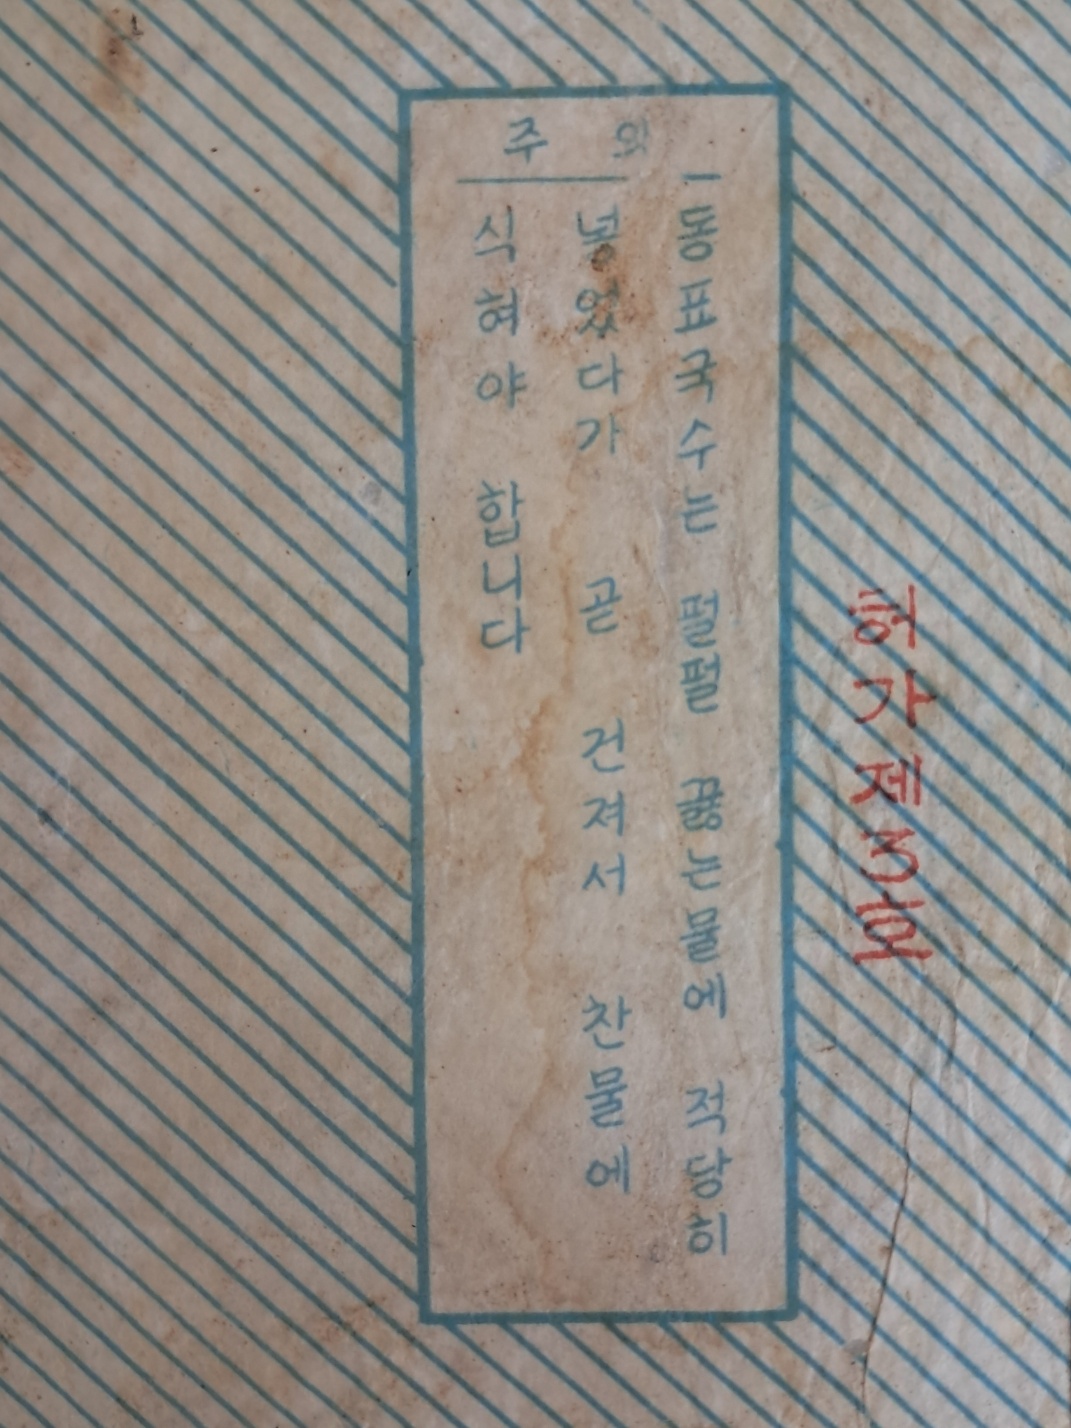 허가제3호
주 의
一동표국수는 펄펄 끓는물에 적당히
넣었다가 곧 건져서 찬물에
식혀야 합니다